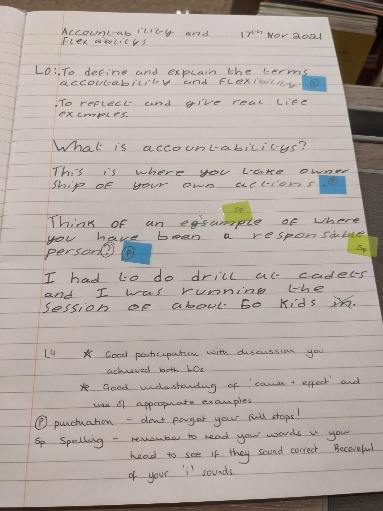 Accountability and 17th Nov 2021
Flexabilitys
LO: To define and explain the terms
accoutability and Flexibility. P
To reflect and give real life
examples.
What is accountabilitys?
This is where you take owner
ship of your own actions. P
Sp
Think of an egsample of where
you have been a responsable
Sp
person? P
I had to do drill at cadets
and I was running the
Session of about 60 kids in.
L4 * Good participation with discussion you
achieved both LOs
* Good understanding of 'cause + effect' and
use of appropriate examples
P punctuation - dont forget your full stops!
Sp Spelling - remember to read your words in your
head to see if they sound correct. Becareful
of your 'i' sounds.